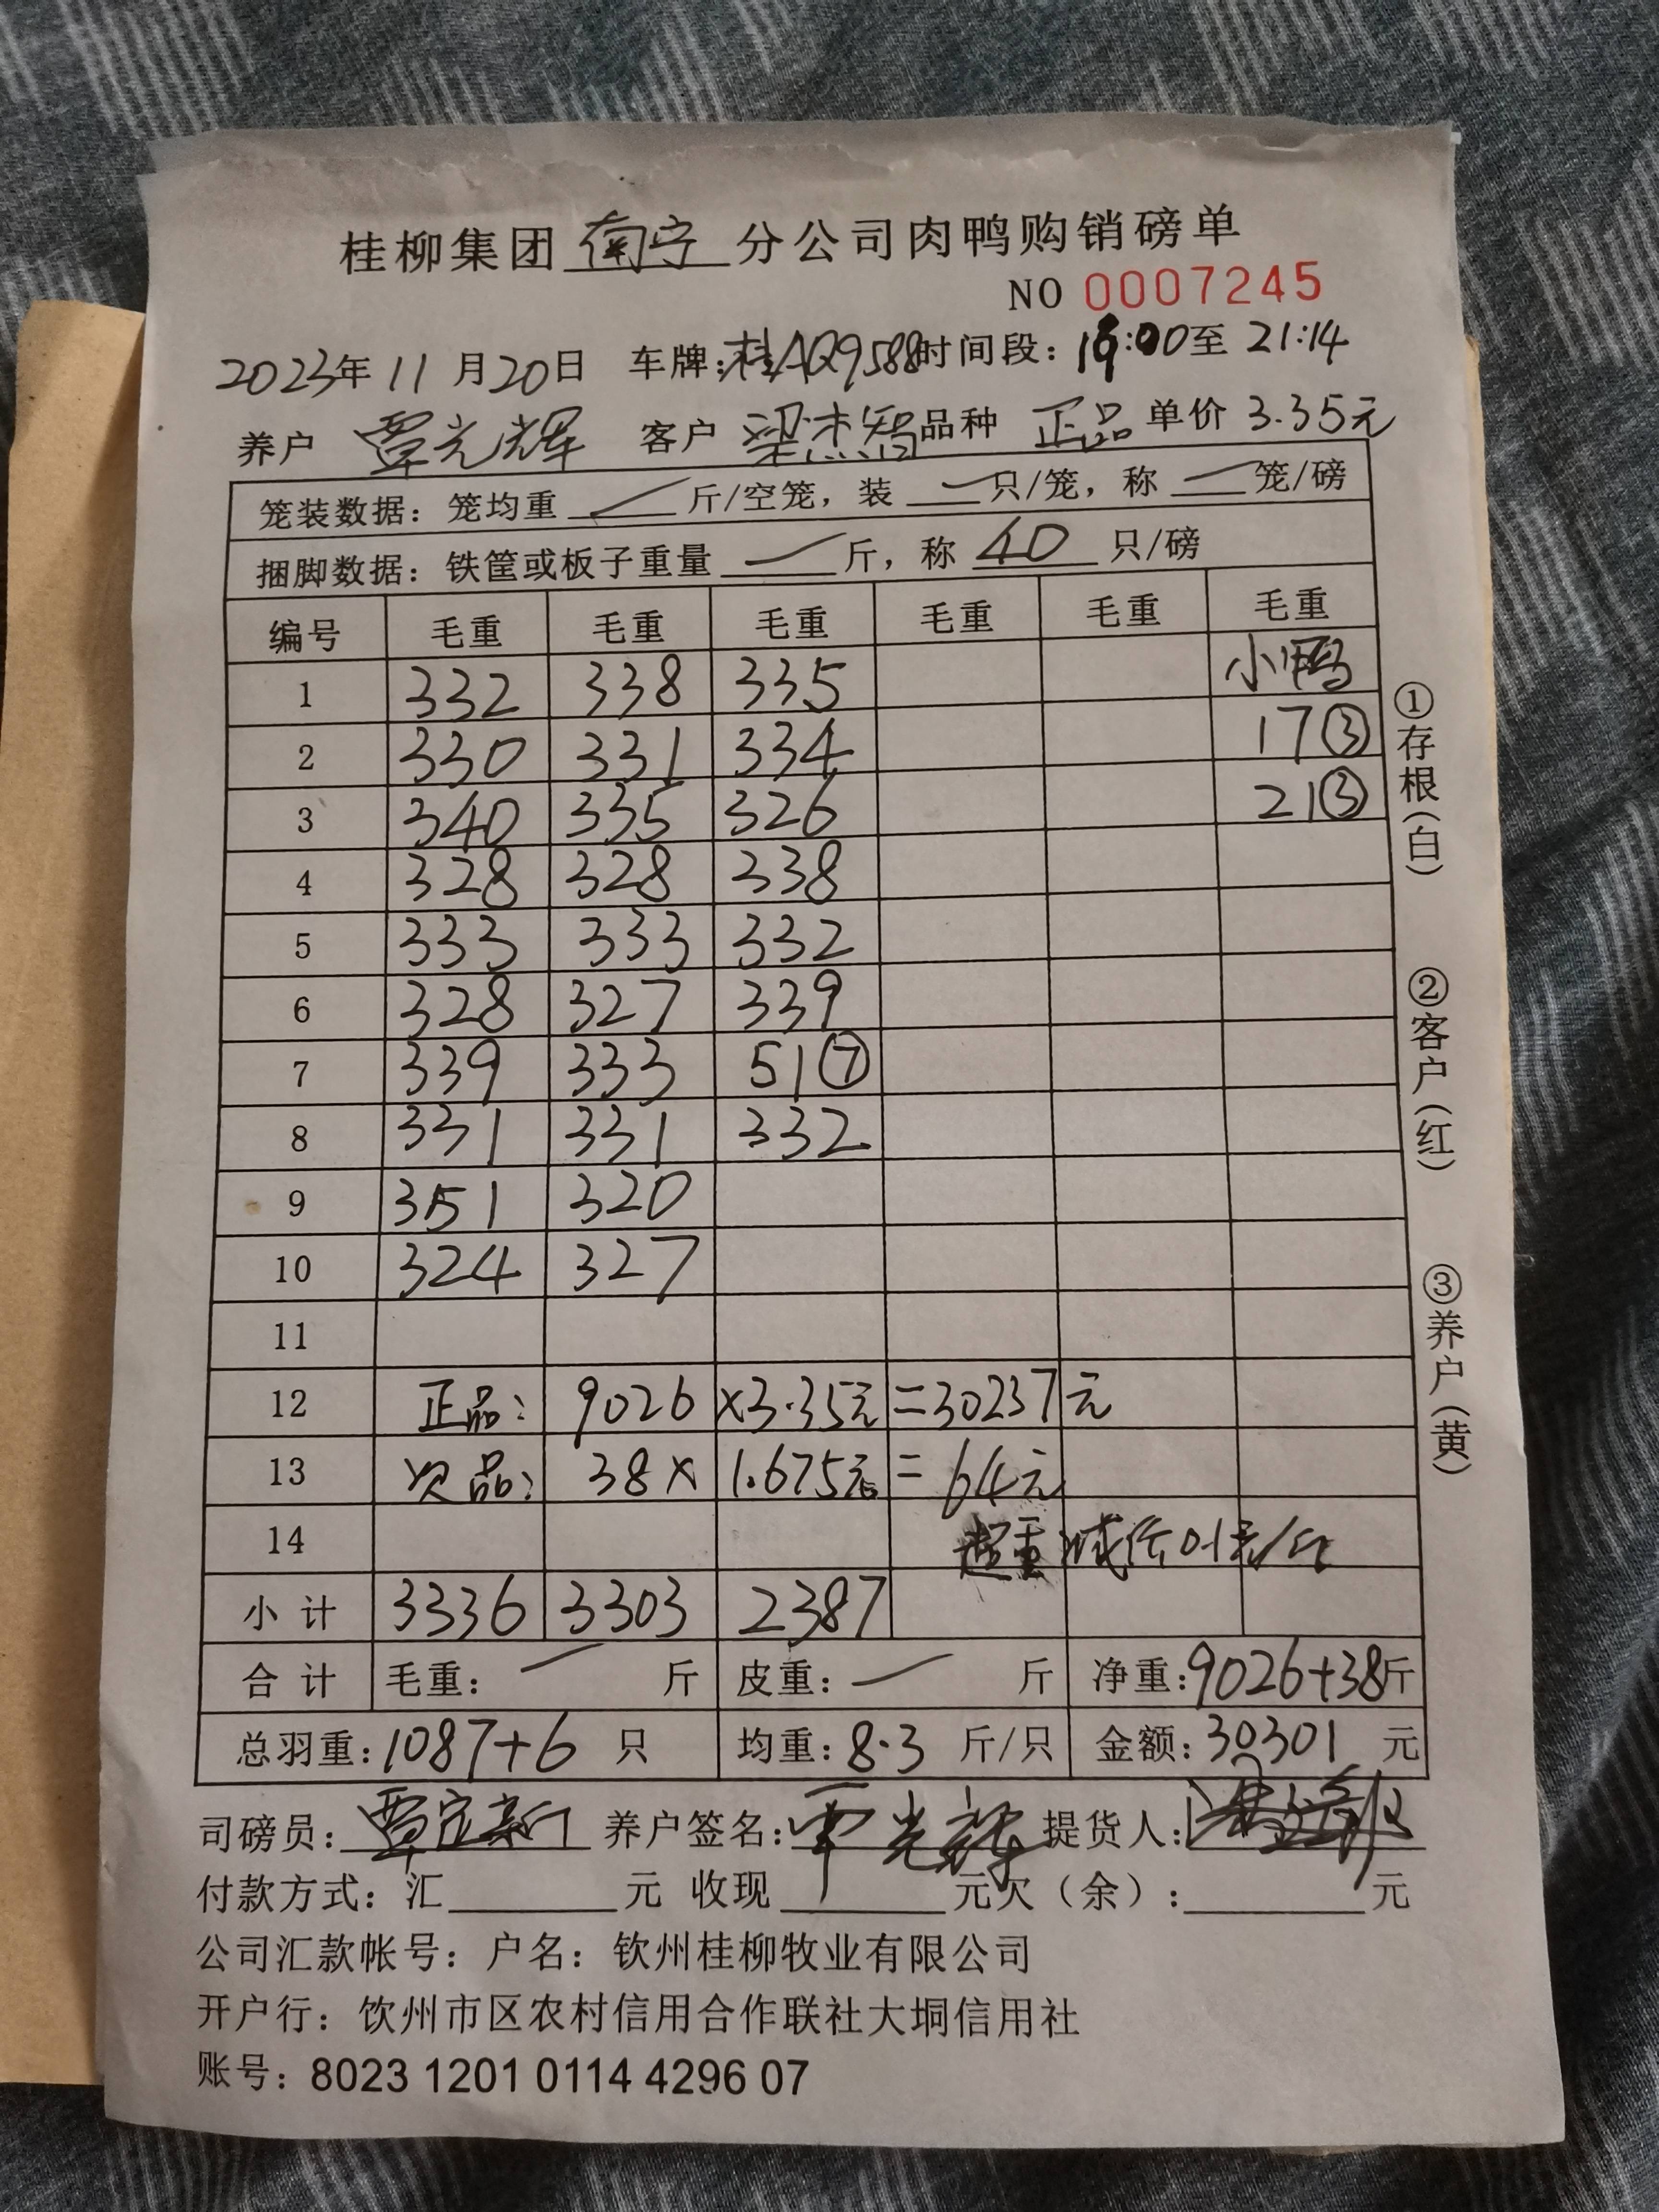 桂柳集团 南宁 分公司肉鸭购销磅单
NO 0007245
2023年 11 月 20日 车牌:桂AQ9588 时间段: 至 21:14
养户 覃光辉 客户 梁杰智 品种 正品 单价 3.35元
笼装数据: 笼均重 — 斤/空笼, 装 — 只/笼, 称 — 笼/磅
捆脚数据: 铁筐或板子重量 — 斤, 称 40 只/磅
编号 毛重 毛重 毛重 毛重 毛重 毛重
1 332 338 335 小鸭
2 330 331 334 17③
3 340 335 326 21③
4 328 328 338
5 333 333 332
6 328 327 339
7 339 333 51⑦
8 331 331 332
9 351 320
10 324 327
11
12 正品: 9026 ×3.35元 =30237元
13 次品: 38× 1.675元 = 64元
14 超重减低0.1元/斤
小计 3336 3303 2387
合计 毛重: — 斤 皮重: — 斤 净重:9026+38斤
总羽重:1087+6 只 均重: 8.3 斤/只 金额:30301 元
司磅员: 覃定新 养户签名: 覃光辉 提货人:
付款方式: 汇 元 收现 元欠(余): 元
公司汇款帐号: 户名: 钦州桂柳牧业有限公司
开户行: 饮州市区农村信用合作联社大垌信用社
账号: 8023 1201 0114 4296 07
①存根(白)
②客户(红)
③养户(黄)